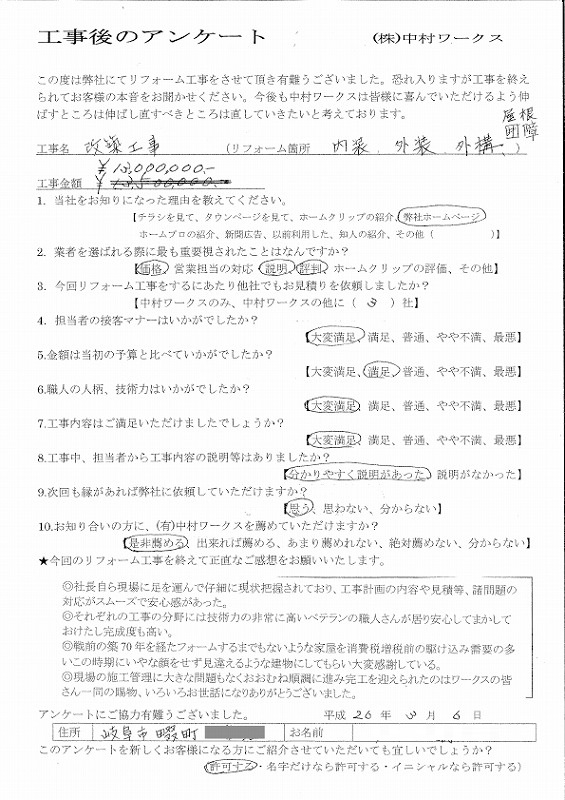 工事後のアンケート　(株)中村ワークス
この度は弊社にてリフォーム工事をさせて頂き有難うございました。恐れ入りますが工事を終え
られてお客様の本音をお聞かせください。今後も中村ワークスは皆様に喜んでいただけるよう伸
ばすところは伸ばし直すべきところは直していきたいと考えております。
屋根
工事名　改築工事　(リフォーム箇所　内装、外装、外構、)
￥13,000,000.-
工事金額　￥13,500,000.-
1. 当社をお知りになった理由を教えてください。
【チラシを見て、タウンページを見て、ホームクリップの紹介、弊社ホームページ
ホームプロの紹介、新聞広告、以前利用した、知人の紹介、その他（　　　　　）】
2. 業者を選ばれる際に最も重要視されたことはなんですか？
【価格、営業担当の対応・説明、評判、ホームクリップの評価、その他】
3. 今回リフォーム工事をするにあたり他社でもお見積りを依頼しましたか？
【中村ワークスのみ、中村ワークスの他に（　3　）社】
4. 担当者の接客マナーはいかがでしたか？
【大変満足、満足、普通、やや不満、最悪】
5.金額は当初の予算と比べていかがでしたか？
【大変満足、満足、普通、やや不満、最悪】
6.職人の人柄、技術力はいかがでしたか？
【大変満足、満足、普通、やや不満、最悪】
7.工事内容はご満足いただけましたでしょうか？
【大変満足、満足、普通、やや不満、最悪】
8.工事中、担当者から工事内容の説明等はありましたか？
【分かりやすく説明があった、説明がなかった】
9.次回も縁があれば弊社に依頼していただけますか？
【思う、思わない、分からない】
10.お知り合いの方に、(有)中村ワークスを薦めていただけますか？
【是非薦める、出来れば薦める、あまり薦めれない、絶対薦めない、分からない】
★今回のリフォーム工事を終えて正直なご感想をお願いいたします。
◎社長自ら現場に足を運んで仔細に現状把握されており、工事計画の内容や見積等、諸問題の
対応がスムーズで安心感があった。
◎それぞれの工事の分野には技術力の非常に高いベテランの職人さんが居り安心してまかして
おけたし完成度も高い。
◎戦前の築70年を経たフォームするまでもないような家屋を消費税増税前の駆け込み需要の多
いこの時期にいやな顔をせず見違えるような建物にしてもらい大変感謝している。
◎現場の施工管理に大きな問題もなくおおむね順調に進み完工を迎えられたのはワークスの皆
さん一同の賜物、いろいろお世話になりありがとうございました。
アンケートにご協力有難うございました。　平成　26　年　3　月　6　日
住所　岐阜市　畷町　お名前
このアンケートを新しくお客様になる方にご紹介させていただいても宜しいでしょうか？
（許可する・名字だけなら許可する・イニシャルなら許可する）